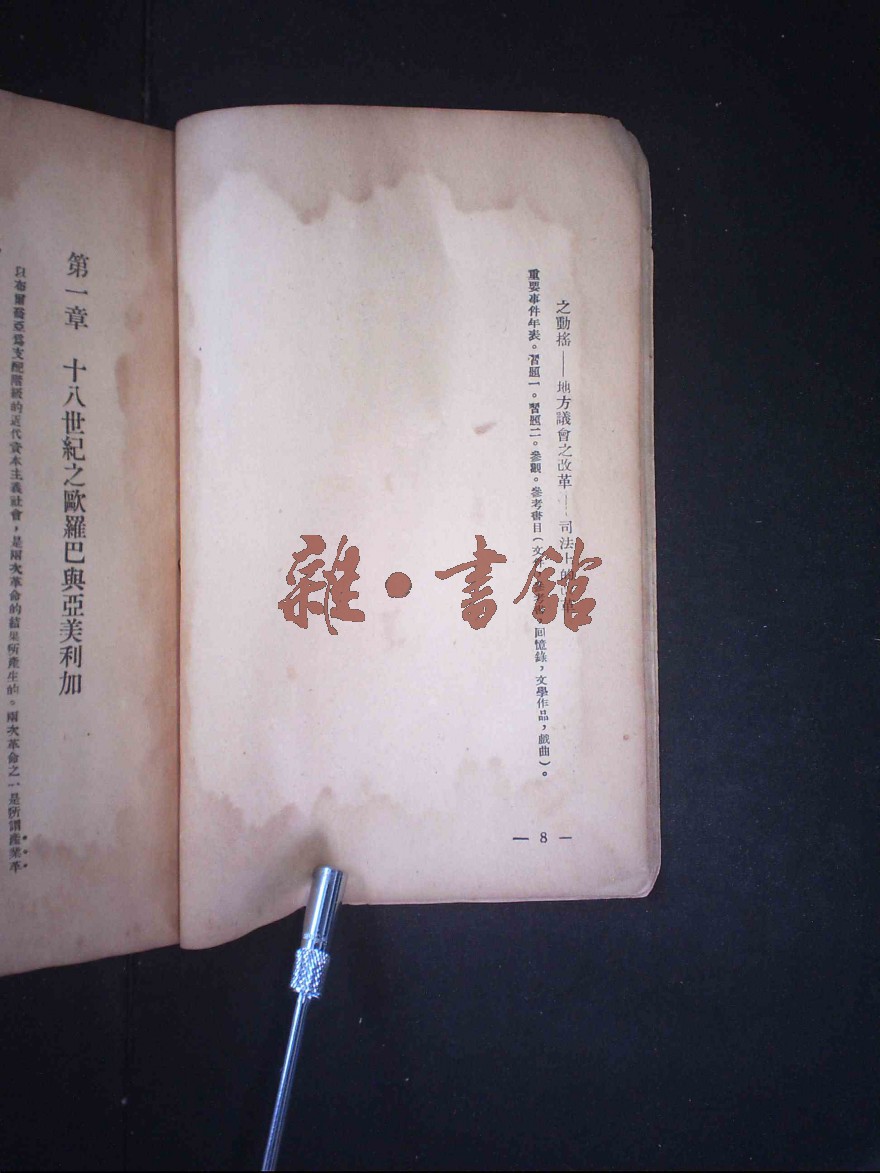 之動搖——地方議會之改革——司法上的
重要事件年表。習題一。習題二。參觀。參考書目(文件 回憶錄,文學作品,戲曲)。
— 8 —
雜·書館
第一章 十八世紀之歐羅巴與亞美利加
以布爾喬亞爲支配階級的近代資本主義社會,是兩次革命的結果所產生的。兩次革命之一是所謂產業革